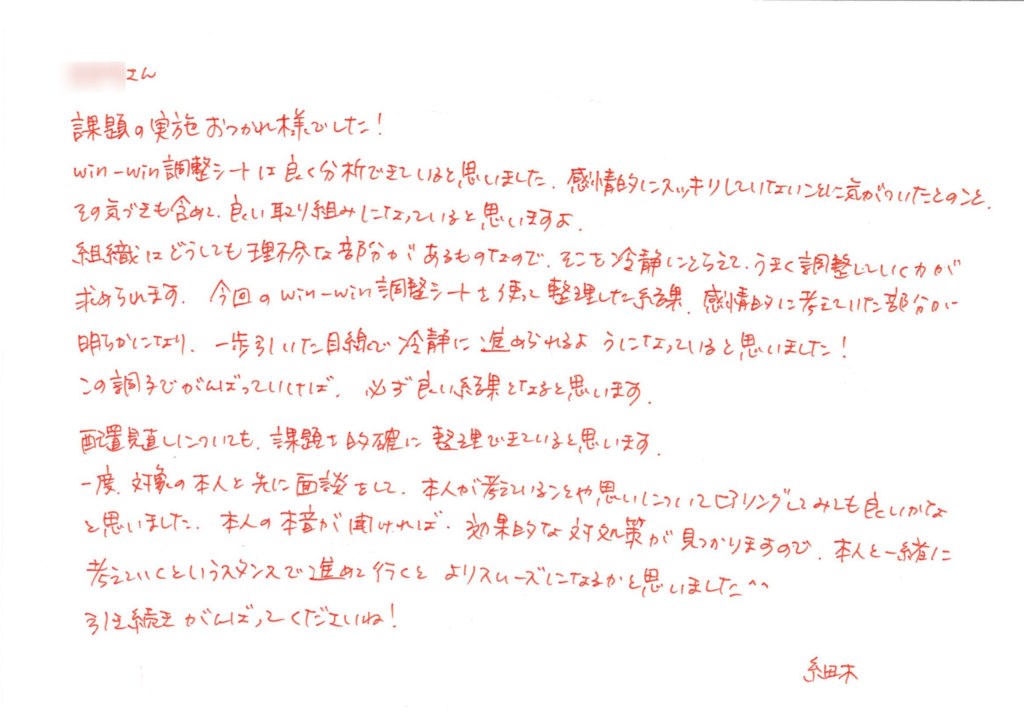 さん
課題の実施おつかれ様でした！
win-win調整シートは良く分析できていると思いました。感情的にスッキリしていないことに気がついたとのこと、
その気づきも含めて、良い取り組みになっていると思いますよ。
組織はどうしても理不尽な部分があるものなので、そこを冷静にとらえて、うまく調整していく力が
求められます。今回のwin-win調整シートを使って整理した結果、感情的に考えていた部分が
明らかになり、一歩引いた目線で冷静に進められるようになっていると思いました！
この調子でがんばっていけば、必ず良い結果となると思います。
配置見直しについても、課題を的確に整理できていると思います。
一度、対象の本人と先に面談をして、本人が考えていることや思いについてヒアリングしてみても良いかな
と思いました。本人の本音が聞ければ、効果的な対処策が見つかりますので、本人と一緒に
考えていくというスタンスで進めて行くとよりスムーズになるかと思いました^^
引き続きがんばってくださいね！
細木